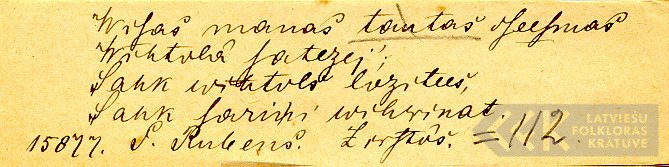 Wisas manas tautas dseesmas
Wihtolâ satezej';
Sahk wihtols lozitees,
Sahk sariņi wihwinat.
15877. P. Rubens. Zirstos. =112.
LATVIEŠU
FOLKLORAS
KRĀTUVE